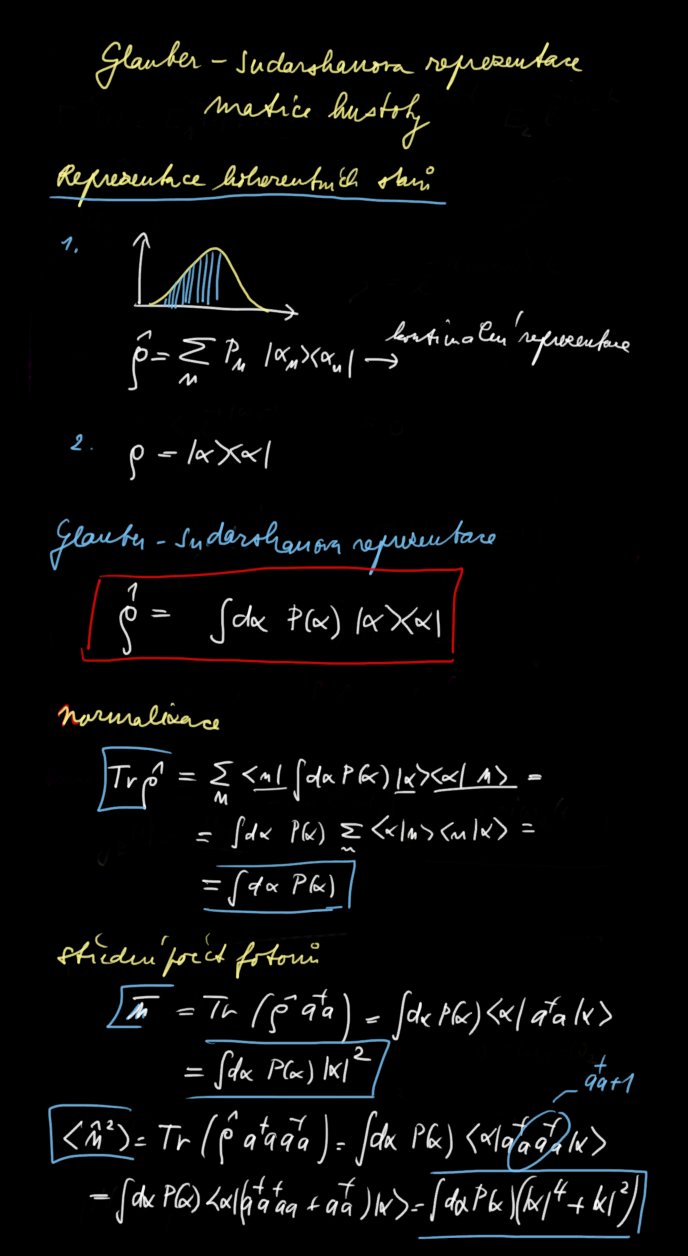 Glauber - Sudarshanova reprezentace
matice hustoty
Reprezentace koherentních stavů
1.
ρ̂ = Σ_n P_n |α_n><α_n| → kontinuální reprezentace
2. ρ = |α><α|
Glauber - Sudarshanova reprezentace
ρ̂ = ∫dα P(α) |α><α|
normalizace
Tr ρ̂ = Σ_n <n| ∫dα P(α) |α><α| n> =
= ∫dα P(α) Σ_n <α|n><n|α> =
= ∫dα P(α)
střední počet fotonů
n̄ = Tr (ρ̂ a⁺a) = ∫dα P(α) <α| a⁺a |α>
= ∫dα P(α) |α|²
a⁺a+1
<n̂²> = Tr (ρ̂ a⁺a a⁺a) = ∫dα P(α) <α|a⁺a a⁺a|α>
= ∫dα P(α) <α|(a⁺a⁺aa + a⁺a)|α> = ∫dα P(α) (|α|⁴ + |α|²)